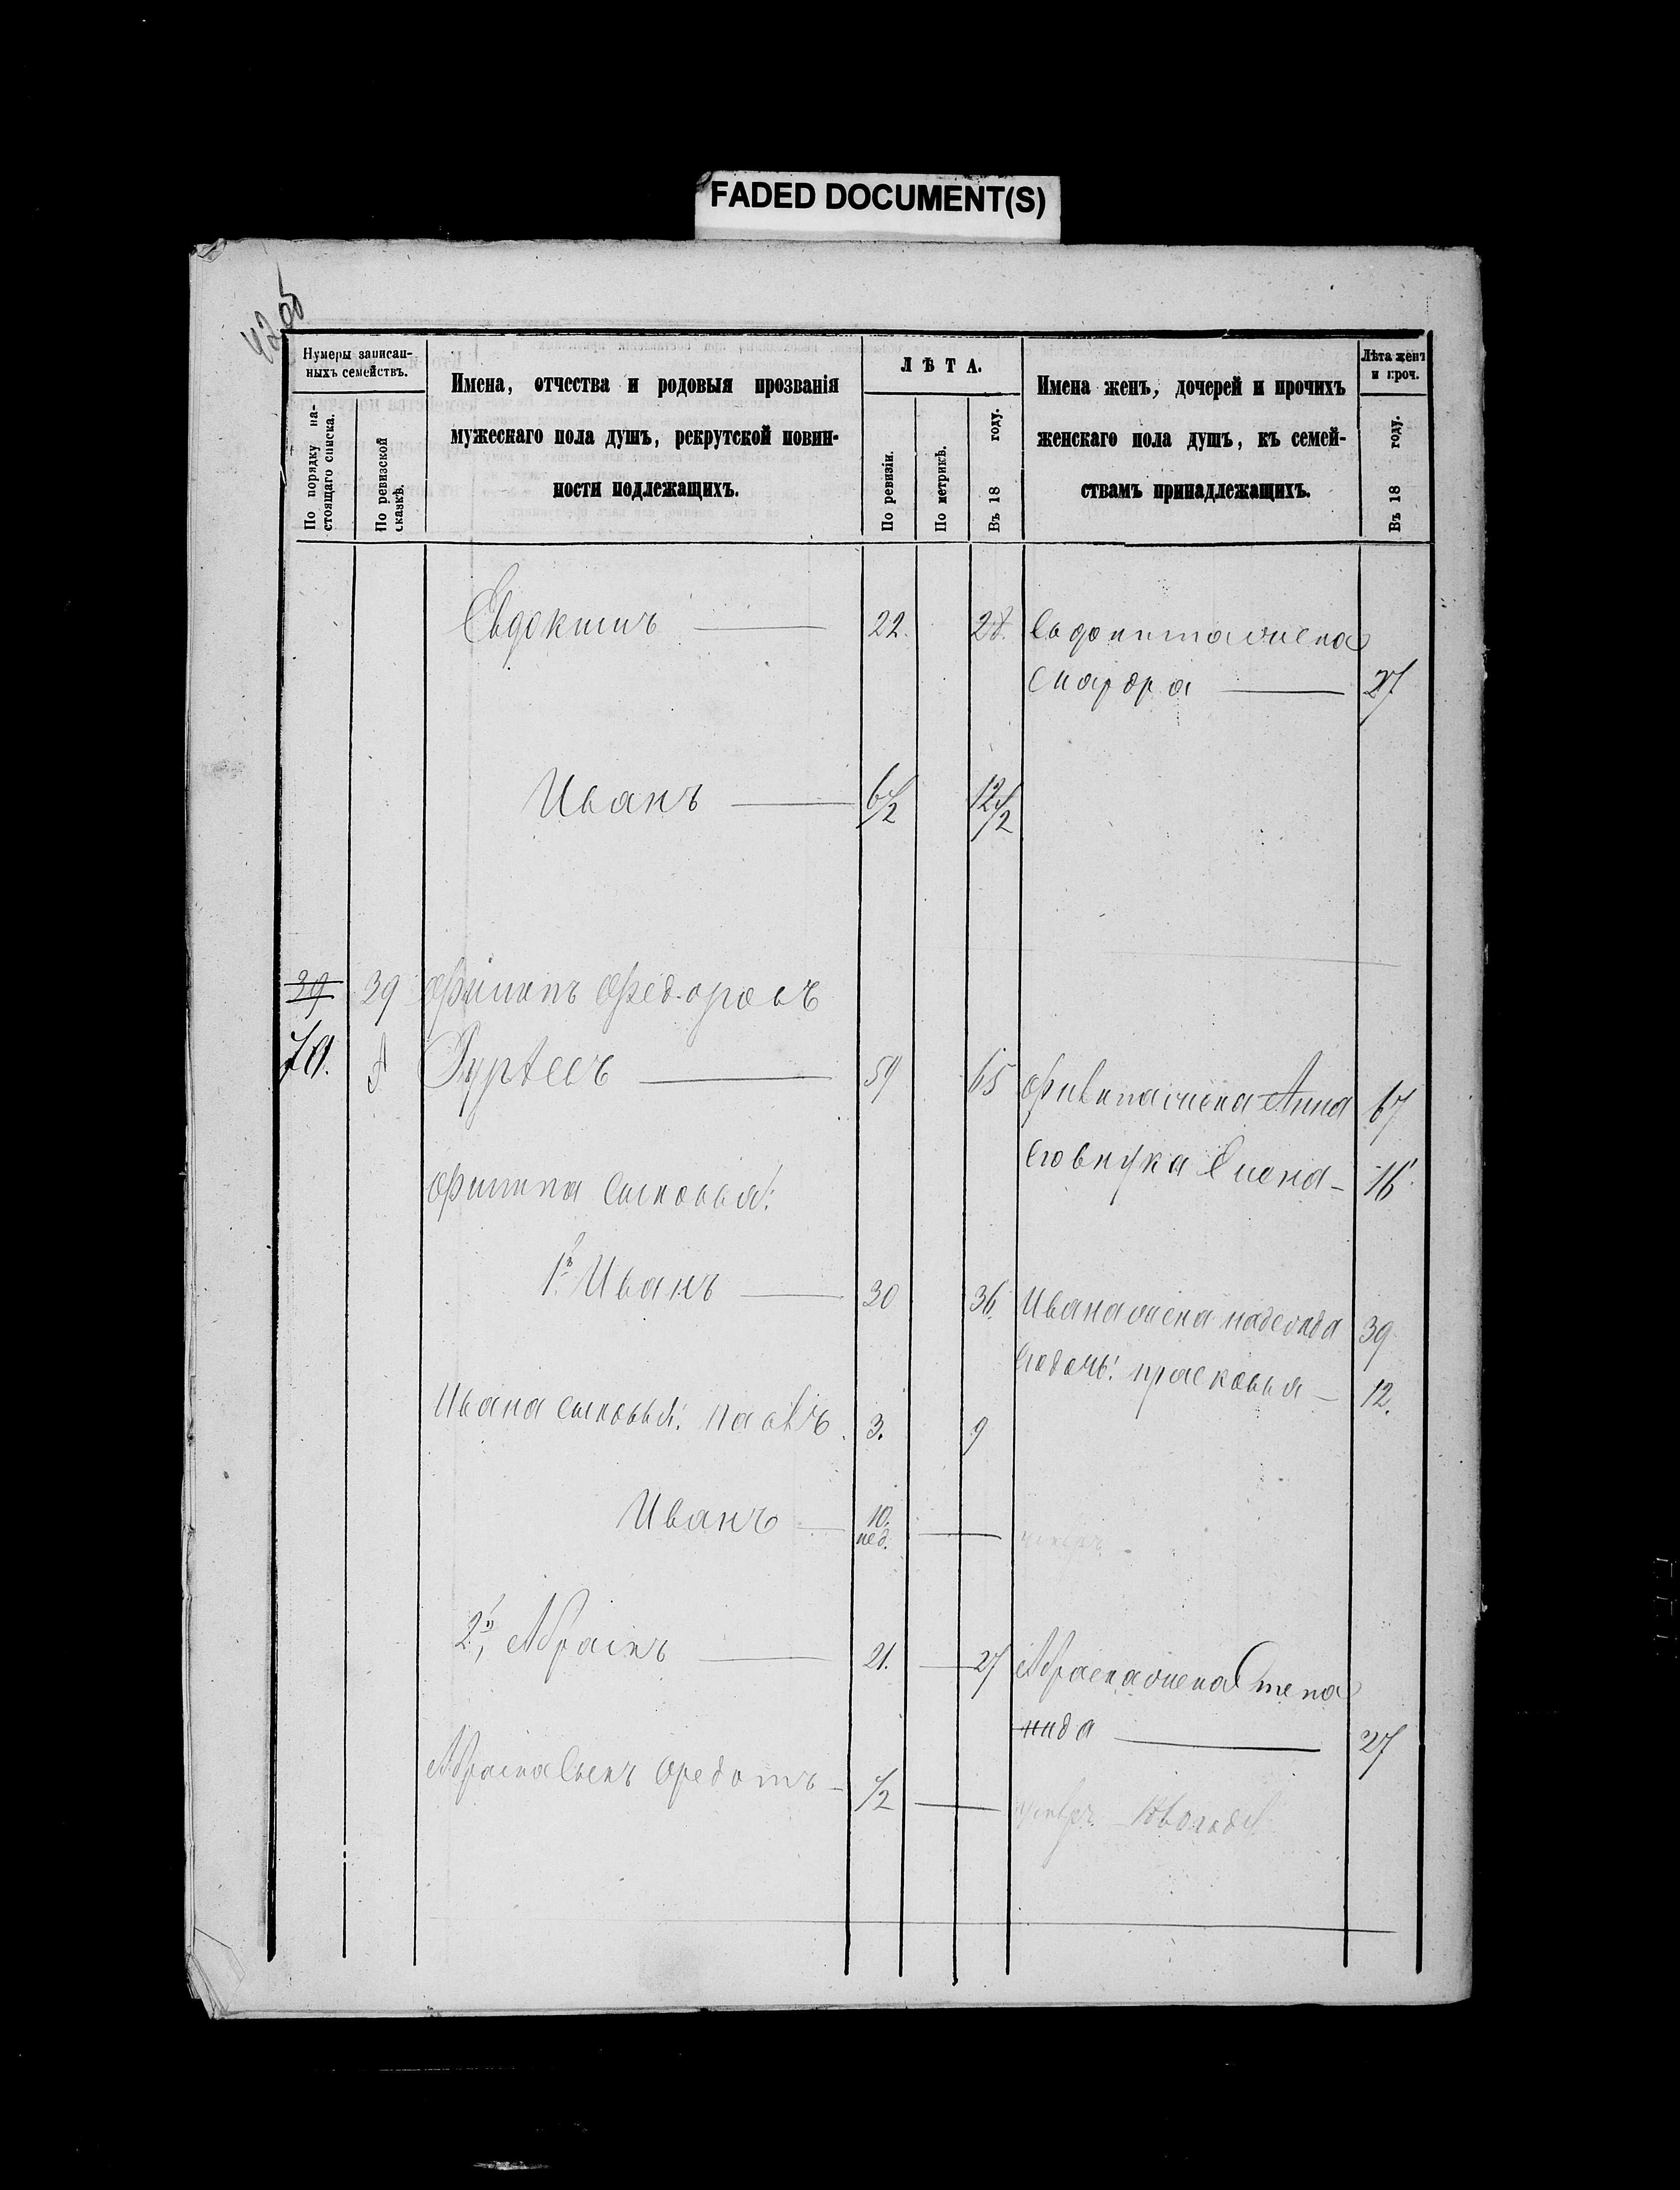 FADED DOCUMENT(S)
42 об
Нумеры записан-
ныхъ семействъ.
По порядку на-
стоящаго списка.
По ревизской
сказкѣ.
Имена, отчества и родовыя прозванія
мужескаго пола душъ, рекрутской повин-
ности подлежащихъ.
ЛѢТА.
По ревизіи.
По метрикѣ.
Въ 18 году.
Имена женъ, дочерей и прочихъ
женскаго пола душъ, къ семей-
ствамъ принадлежащихъ.
Лѣта женъ
и проч.
Въ 18 году.
Евдокимъ 22. 28. Евдокима жена
27
Иванъ 6 1/2 12 1/2
39 39 Филипъ Федоровъ
70. 59 65 Филипа жена Анна 67
Его внука Елена 16
Филипа сыновья:
1й Иванъ 30 36. Ивана жена Надежда 39
Его дочь: Прасковья 12.
Ивана сыновья: Павелъ 3. 9
Иванъ 10. нед.
2й, Абрамъ 21. 27 Абрама жена Степа
нида 27
Абрама сынъ Федотъ 1/2